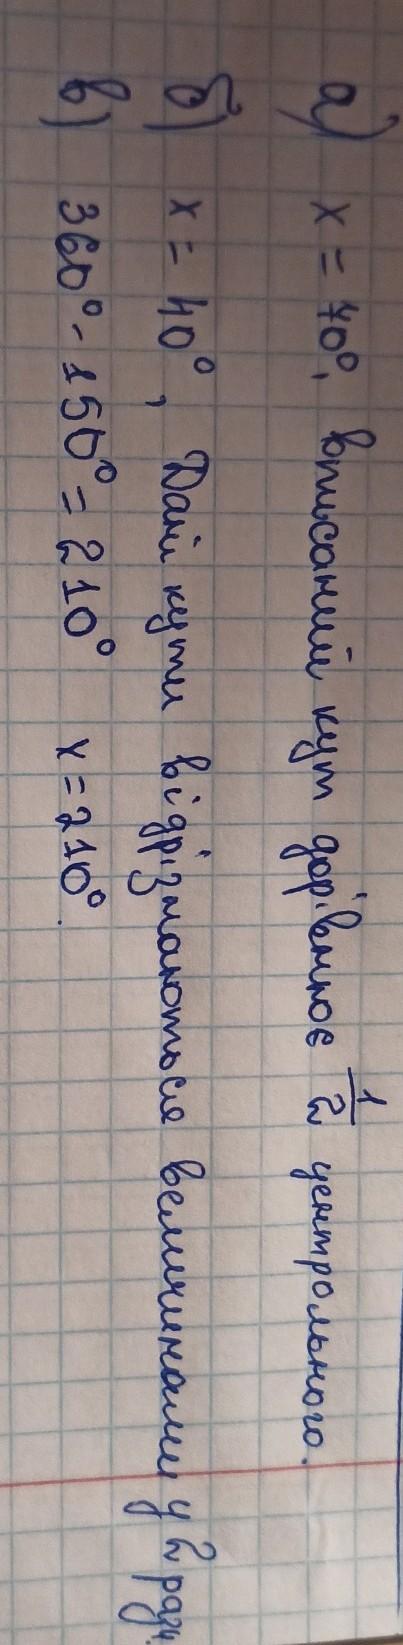 а) x = 70°, вписаний кут дорівнює 1/2 центрального.
б) x = 40°, Дані кути відрізняються величинами у 2 рази.
в) 360° - 150° = 210° x = 210°.